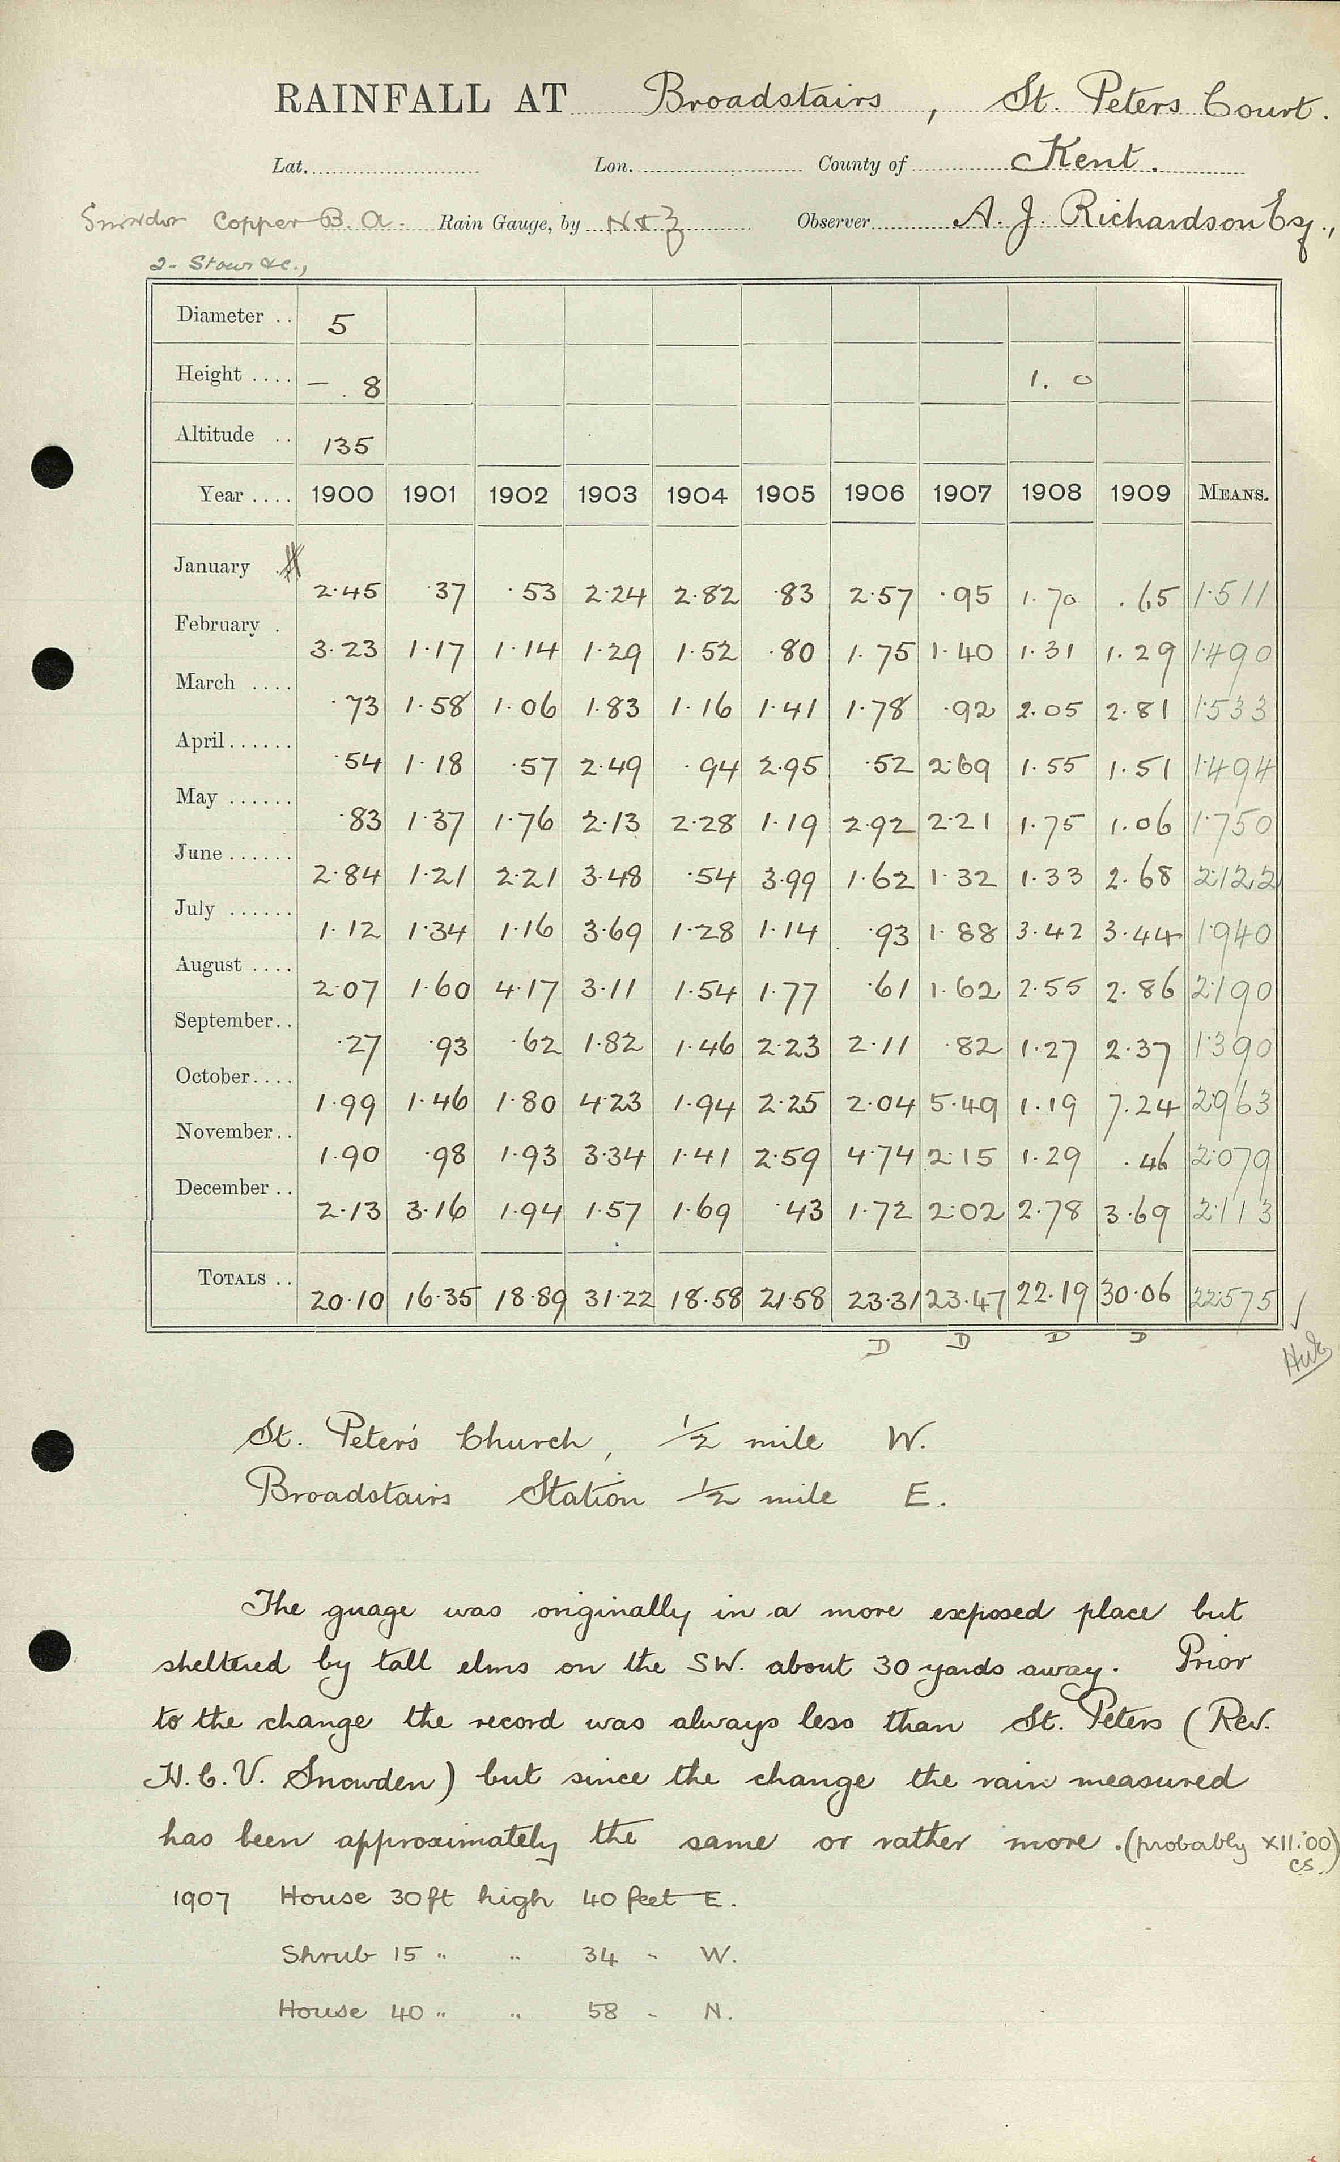 RAINFALL AT Broadstairs, St. Peters Court.
Lat. Lon. County of Kent.
Copper B. a. Rain Gauge, by N & Z Observer A. J. Richardson Esq.,
Diameter .. 5
Height .... - . 8 1. 0
Altitude .. 135
Year .... 1900 1901 1902 1903 1904 1905 1906 1907 1908 1909 MEANS.
January 2.45 .37 .53 2.24 2.82 .83 2.57 .95 1.70 .65 1.511
February . 3.23 1.17 1.14 1.29 1.52 .80 1.75 1.40 1.31 1.29 1.490
March .... .73 1.58 1.06 1.83 1.16 1.41 1.78 .92 2.05 2.81 1.533
April ...... .54 1.18 .57 2.49 .94 2.95 .52 2.69 1.55 1.51 1.494
May ...... .83 1.37 1.76 2.13 2.28 1.19 2.92 2.21 1.75 1.06 1.750
June ...... 2.84 1.21 2.21 3.48 .54 3.99 1.62 1.32 1.33 2.68 2.122
July ...... 1.12 1.34 1.16 3.69 1.28 1.14 .93 1.88 3.42 3.44 1.940
August .... 2.07 1.60 4.17 3.11 1.54 1.77 .61 1.62 2.55 2.86 2.190
September .. .27 .93 .62 1.82 1.46 2.23 2.11 .82 1.27 2.37 1.390
October .... 1.99 1.46 1.80 4.23 1.94 2.25 2.04 5.49 1.19 7.24 2.963
November .. 1.90 .98 1.93 3.34 1.41 2.59 4.74 2.15 1.29 .46 2.079
December .. 2.13 3.16 1.94 1.57 1.69 .43 1.72 2.02 2.78 3.69 2.113
TOTALS .. 20.10 16.35 18.89 31.22 18.58 21.58 23.31 23.47 22.19 30.06 22.575
D D D D
St. Peter's Church, ½ mile W.
Broadstairs Station ½ mile E.
The guage was originally in a more exposed place but
sheltered by tall elms on the SW. about 30 yards away. Prior
to the change the record was always less than St. Peters (Rev.
H. C. V. Snowden) but since the change the rain measured
has been approximately the same or rather more. (probably XII.'00)
cs.
1907 House 30 ft high 40 feet E.
Shrub 15 " " 34 " W.
House 40 " " 58 " N.